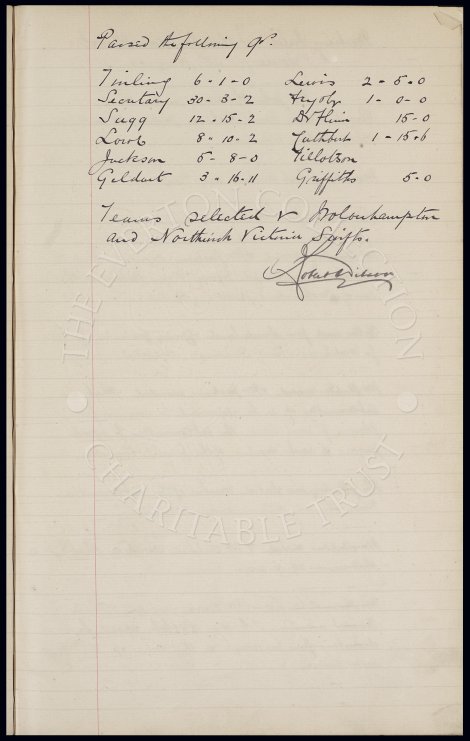 Passed the following a/cs.
Tinling 6 - 1 - 0 Lewis 2 - 5 - 0
Secretary 30 - 3 - 2 Fryob 1 - 0 - 0
Sugg 12 - 15 - 2 15 - 0
Lowe 8 - 10 - 2 Cuthbert 1 - 15 - 6
Jackson 5 - 8 - 0 Tillotson
Geldart 3 - 16 - 11 Griffiths 5 - 0
Teams selected v Wolverhampton
and Northwich Victoria Swifts.
THE EVERTON COLLECTION
CHARITABLE TRUST